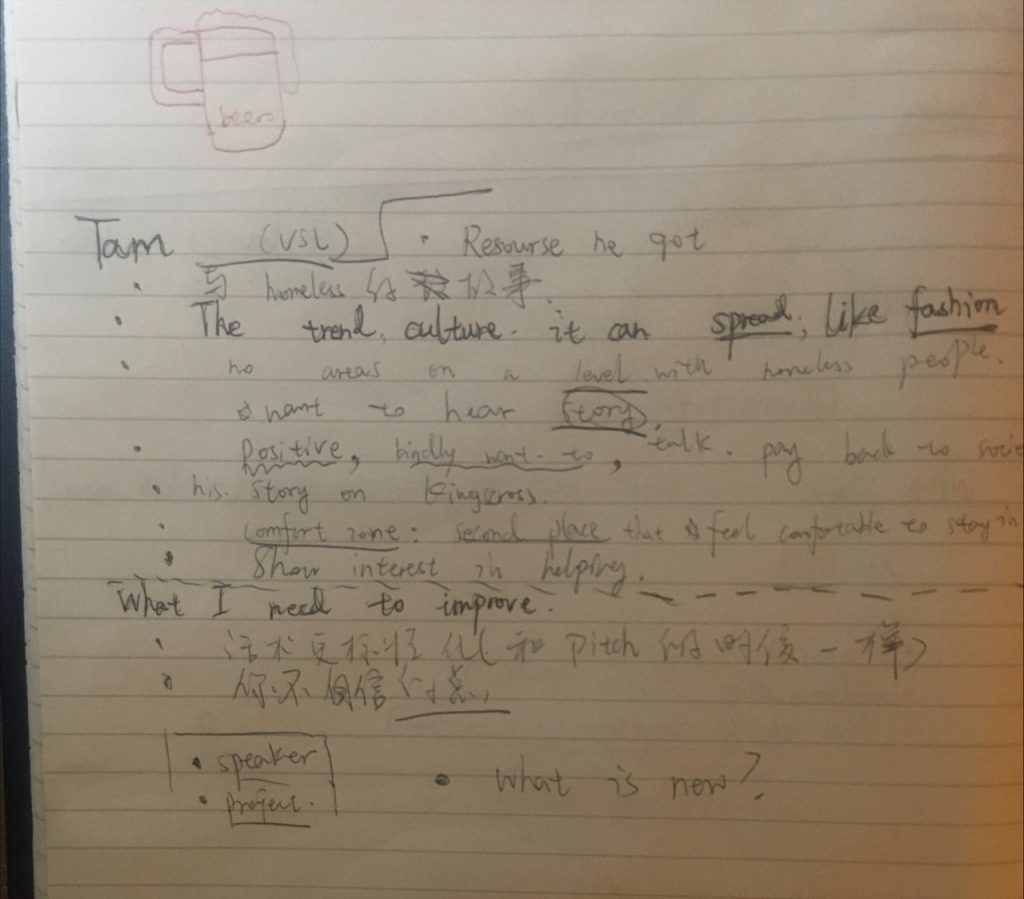 beers
Tam (VSL) • Resourse he got
• 与 homeless 的故事.
• The trend, culture. it can spread, like fashion
• no areas on a level with homeless people.
want to hear story.
• Positive, kindly want to, talk. pay back to socie
• his story on kingcross.
• comfort zone: second place that feel comfortable to stay in
• Show interest in helping.
What I need to improve.
• 话术更标准化(和 pitch 的时候一样)
• 你不自信的点,
• speaker
• project.
• What is new?